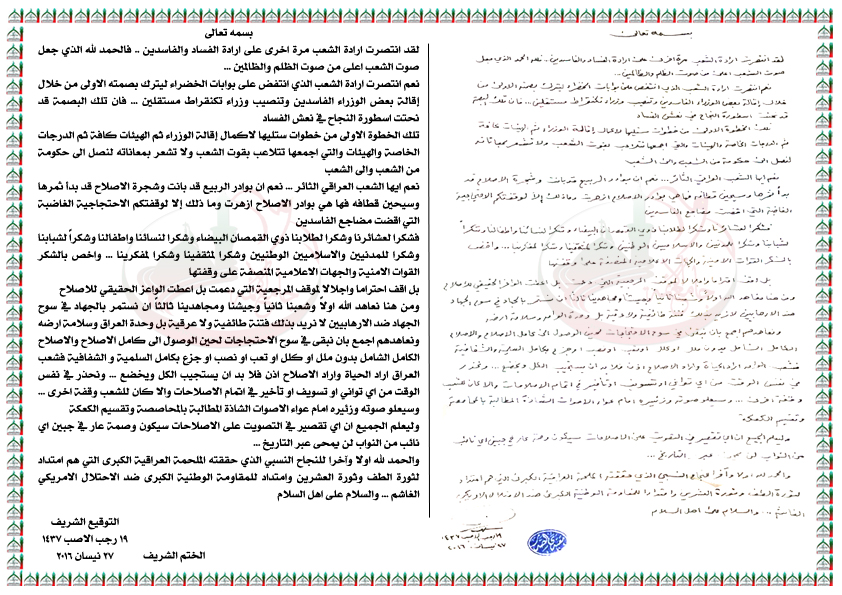 بسمه تعالى
لقد انتصرت ارادة الشعب مرة اخرى على ارادة الفساد والفاسدين .. فالحمد لله الذي جعل
صوت الشعب اعلى من صوت الظلم والظالمين ...
نعم انتصرت ارادة الشعب الذي انتفض على بوابات الخضراء ليترك بصمته الاولى من
خلال إقالة بعض الوزراء الفاسدين وتنصيب وزراء تكنقراط مستقلين ... فان تلك البصمة
قد نحتت اسطورة النجاح في نعش الفساد
تلك الخطوة الاولى من خطوات ستليها لاكمال إقالة الوزراء ثم الهيئات كافة
ثم الدرجات الخاصة والهيئات والتي اجمعها تتلاعب بقوت الشعب ولا تشعر بمعاناته
لنصل الى حكومة من الشعب والى الشعب
نعم ايها الشعب العراقي الثائر ... نعم ان بوادر الربيع قد بانت وشجرة الاصلاح قد
بدأ ثمرها وسيحين قطافه فها هي بوادر الاصلاح ازهرت وما ذلك إلا لوقفتكم الاحتجاجية
الغاضبة التي اقضت مضاجع الفاسدين
فشكرا لعشائرنا وشكرا لطلابنا ذوي القمصان البيضاء وشكرا لنسائنا واطفالنا وشكراً
لشبابنا وشكرا للمدنيين والاسلاميين الوطنيين وشكرا لمثقفينا وشكرا لمفكرينا ... واخص
بالشكر القوات الامنية والجهات الاعلامية المنصفة على وقفتها
بل اقف احتراما واجلالا لموقف المرجعية التي دعمت بل اعطت الواعز الحقيقي للاصلاح
ومن هنا نعاهد الله اولاً وشعبنا ثانياً وجيشنا ومجاهدينا ثالثاً ان نستمر بالجهاد في سوح الجهاد
ضد الارهابيين لا نريد بذلك فتنة طائفية ولا عرقية بل وحدة العراق وسلامة ارضه
ونعاهدهم اجمع بان نبقى في سوح الاحتجاجات لحين الوصول الى كامل الاصلاح والاصلاح
الكامل الشامل بدون ملل او كلل او تعب او نصب او جزع بكامل السلمية والشفافية
فشعب العراق اراد الحياة واراد الاصلاح اذن فلا بد ان يستجيب الكل ويخضع ... ونحذر
في نفس الوقت من اي تواني او تسويف او تأخير في اتمام الاصلاحات والا كان للشعب
وقفة اخرى ... وسيعلو صوته وزئيره امام عواء الاصوات الشاذة المطالبة بالمحاصصة
وتقسيم الكعكة
وليعلم الجميع ان اي تقصير في التصويت على الاصلاحات سيكون وصمة عار في جبين اي نائب
من النواب لن يمحى عبر التاريخ ...
والحمد لله اولا وآخرا للنجاح النسبي الذي حققته الملحمة العراقية الكبرى التي هم امتداد
لثورة الطف وثورة العشرين وامتداد للمقاومة الوطنية الكبرى ضد الاحتلال الامريكي
الغاشم ... والسلام على اهل السلام
١٩ رجب الاصب ١٤٣٧
٢٧ نيسان ٢٠١٦
بسمه تعالى
لقد انتصرت ارادة الشعب مرة اخرى على ارادة الفساد والفاسدين .. فالحمد لله الذي جعل
صوت الشعب اعلى من صوت الظلم والظالمين ...
نعم انتصرت ارادة الشعب الذي انتفض على بوابات الخضراء ليترك بصمته الاولى من خلال
إقالة بعض الوزراء الفاسدين وتنصيب وزراء تكنقراط مستقلين ... فان تلك البصمة قد
نحتت اسطورة النجاح في نعش الفساد
تلك الخطوة الاولى من خطوات ستليها لاكمال إقالة الوزراء ثم الهيئات كافة ثم الدرجات
الخاصة والهيئات والتي اجمعها تتلاعب بقوت الشعب ولا تشعر بمعاناته لنصل الى حكومة
من الشعب والى الشعب
نعم ايها الشعب العراقي الثائر ... نعم ان بوادر الربيع قد بانت وشجرة الاصلاح قد بدأ ثمرها
وسيحين قطافه فها هي بوادر الاصلاح ازهرت وما ذلك إلا لوقفتكم الاحتجاجية الغاضبة
التي اقضت مضاجع الفاسدين
فشكرا لعشائرنا وشكرا لطلابنا ذوي القمصان البيضاء وشكرا لنسائنا واطفالنا وشكراً لشبابنا
وشكرا للمدنيين والاسلاميين الوطنيين وشكرا لمثقفينا وشكرا لمفكرينا ... واخص بالشكر
القوات الامنية والجهات الاعلامية المنصفة على وقفتها
بل اقف احتراما واجلالا لموقف المرجعية التي دعمت بل اعطت الواعز الحقيقي للاصلاح
ومن هنا نعاهد الله اولاً وشعبنا ثانياً وجيشنا ومجاهدينا ثالثاً ان نستمر بالجهاد في سوح
الجهاد ضد الارهابيين لا نريد بذلك فتنة طائفية ولا عرقية بل وحدة العراق وسلامة ارضه
ونعاهدهم اجمع بان نبقى في سوح الاحتجاجات لحين الوصول الى كامل الاصلاح والاصلاح
الكامل الشامل بدون ملل او كلل او تعب او نصب او جزع بكامل السلمية و الشفافية فشعب
العراق اراد الحياة واراد الاصلاح اذن فلا بد ان يستجيب الكل ويخضع ... ونحذر في نفس
الوقت من اي تواني او تسويف او تأخير في اتمام الاصلاحات والا كان للشعب وقفة اخرى ...
وسيعلو صوته وزئيره امام عواء الاصوات الشاذة المطالبة بالمحاصصة وتقسيم الكعكة
وليعلم الجميع ان اي تقصير في التصويت على الاصلاحات سيكون وصمة عار في جبين اي
نائب من النواب لن يمحى عبر التاريخ ...
والحمد لله اولا وآخرا للنجاح النسبي الذي حققته الملحمة العراقية الكبرى التي هم امتداد
لثورة الطف وثورة العشرين وامتداد للمقاومة الوطنية الكبرى ضد الاحتلال الامريكي
الغاشم ... والسلام على اهل السلام
التوقيع الشريف
١٩ رجب الاصب ١٤٣٧
الختم الشريف ٢٧ نيسان ٢٠١٦